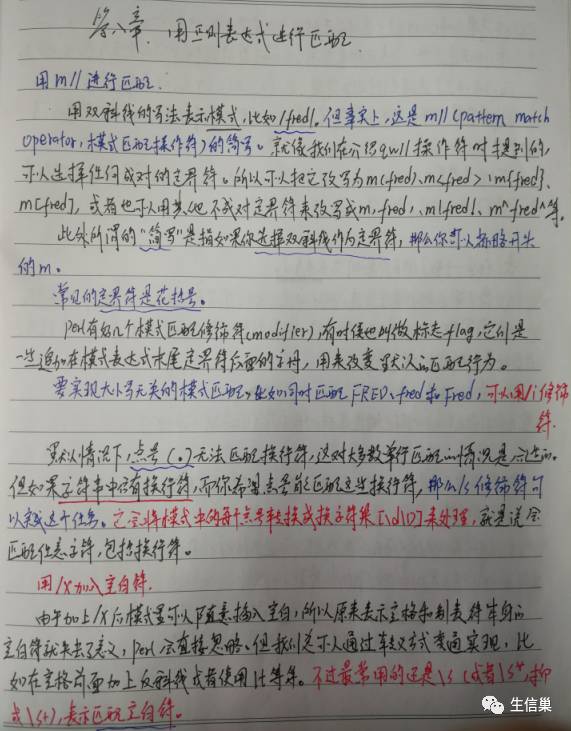 第八章. 用正则表达式进行匹配
用m//进行匹配.
用双斜线的写法表示模式,比如/fred/。但事实上,这是m//(pattern match
operator,模式匹配操作符)的简写。就像我们在介绍qw//操作符时提到的,
可以选择任何成对的定界符。所以可以把它改写为m(fred)、m<fred>、m{fred}、
m[fred],或者也可以用其他不成对定界符来改写成m,fred,、m!fred!、m^fred^等.
此外所谓的“简写”是指如果你选择双斜线作为定界符,那么你可以省略开头
的m。
常见的定界符是花括号。
Perl有好几个模式匹配修饰符(modifier),有时候也叫做标志flag,它们是
一些追加在模式表达式末尾定界符后面的字母,用来改变默认的匹配行为。
要实现大小写无关的模式匹配,比如同时匹配FRED、fred和Fred,可以用/i修饰
符.
默认情况下,点号(.)无法匹配换行符,这对大多数单行匹配的情况是合适的。
但如果字符串中含有换行符,而你希望点号能匹配这些换行符,那么/s修饰符可
以完成这个任务。它会将模式中的每个点号转换成换字符集[\d\D]来处理,就是说会
匹配任意字符,包括换行符。
用/x加入空白符.
由于加上/x后模式里可以随意插入空白,所以原来表示空格和制表符本身的
空白符就失去了意义,perl会直接忽略。但我们总可以通过转义方式变通实现,比
如在空格前面加上反斜线或者使用\t等等。不过最常用的还是\s(或者\s*,抑
或\s+),表示匹配空白符。
生信巢